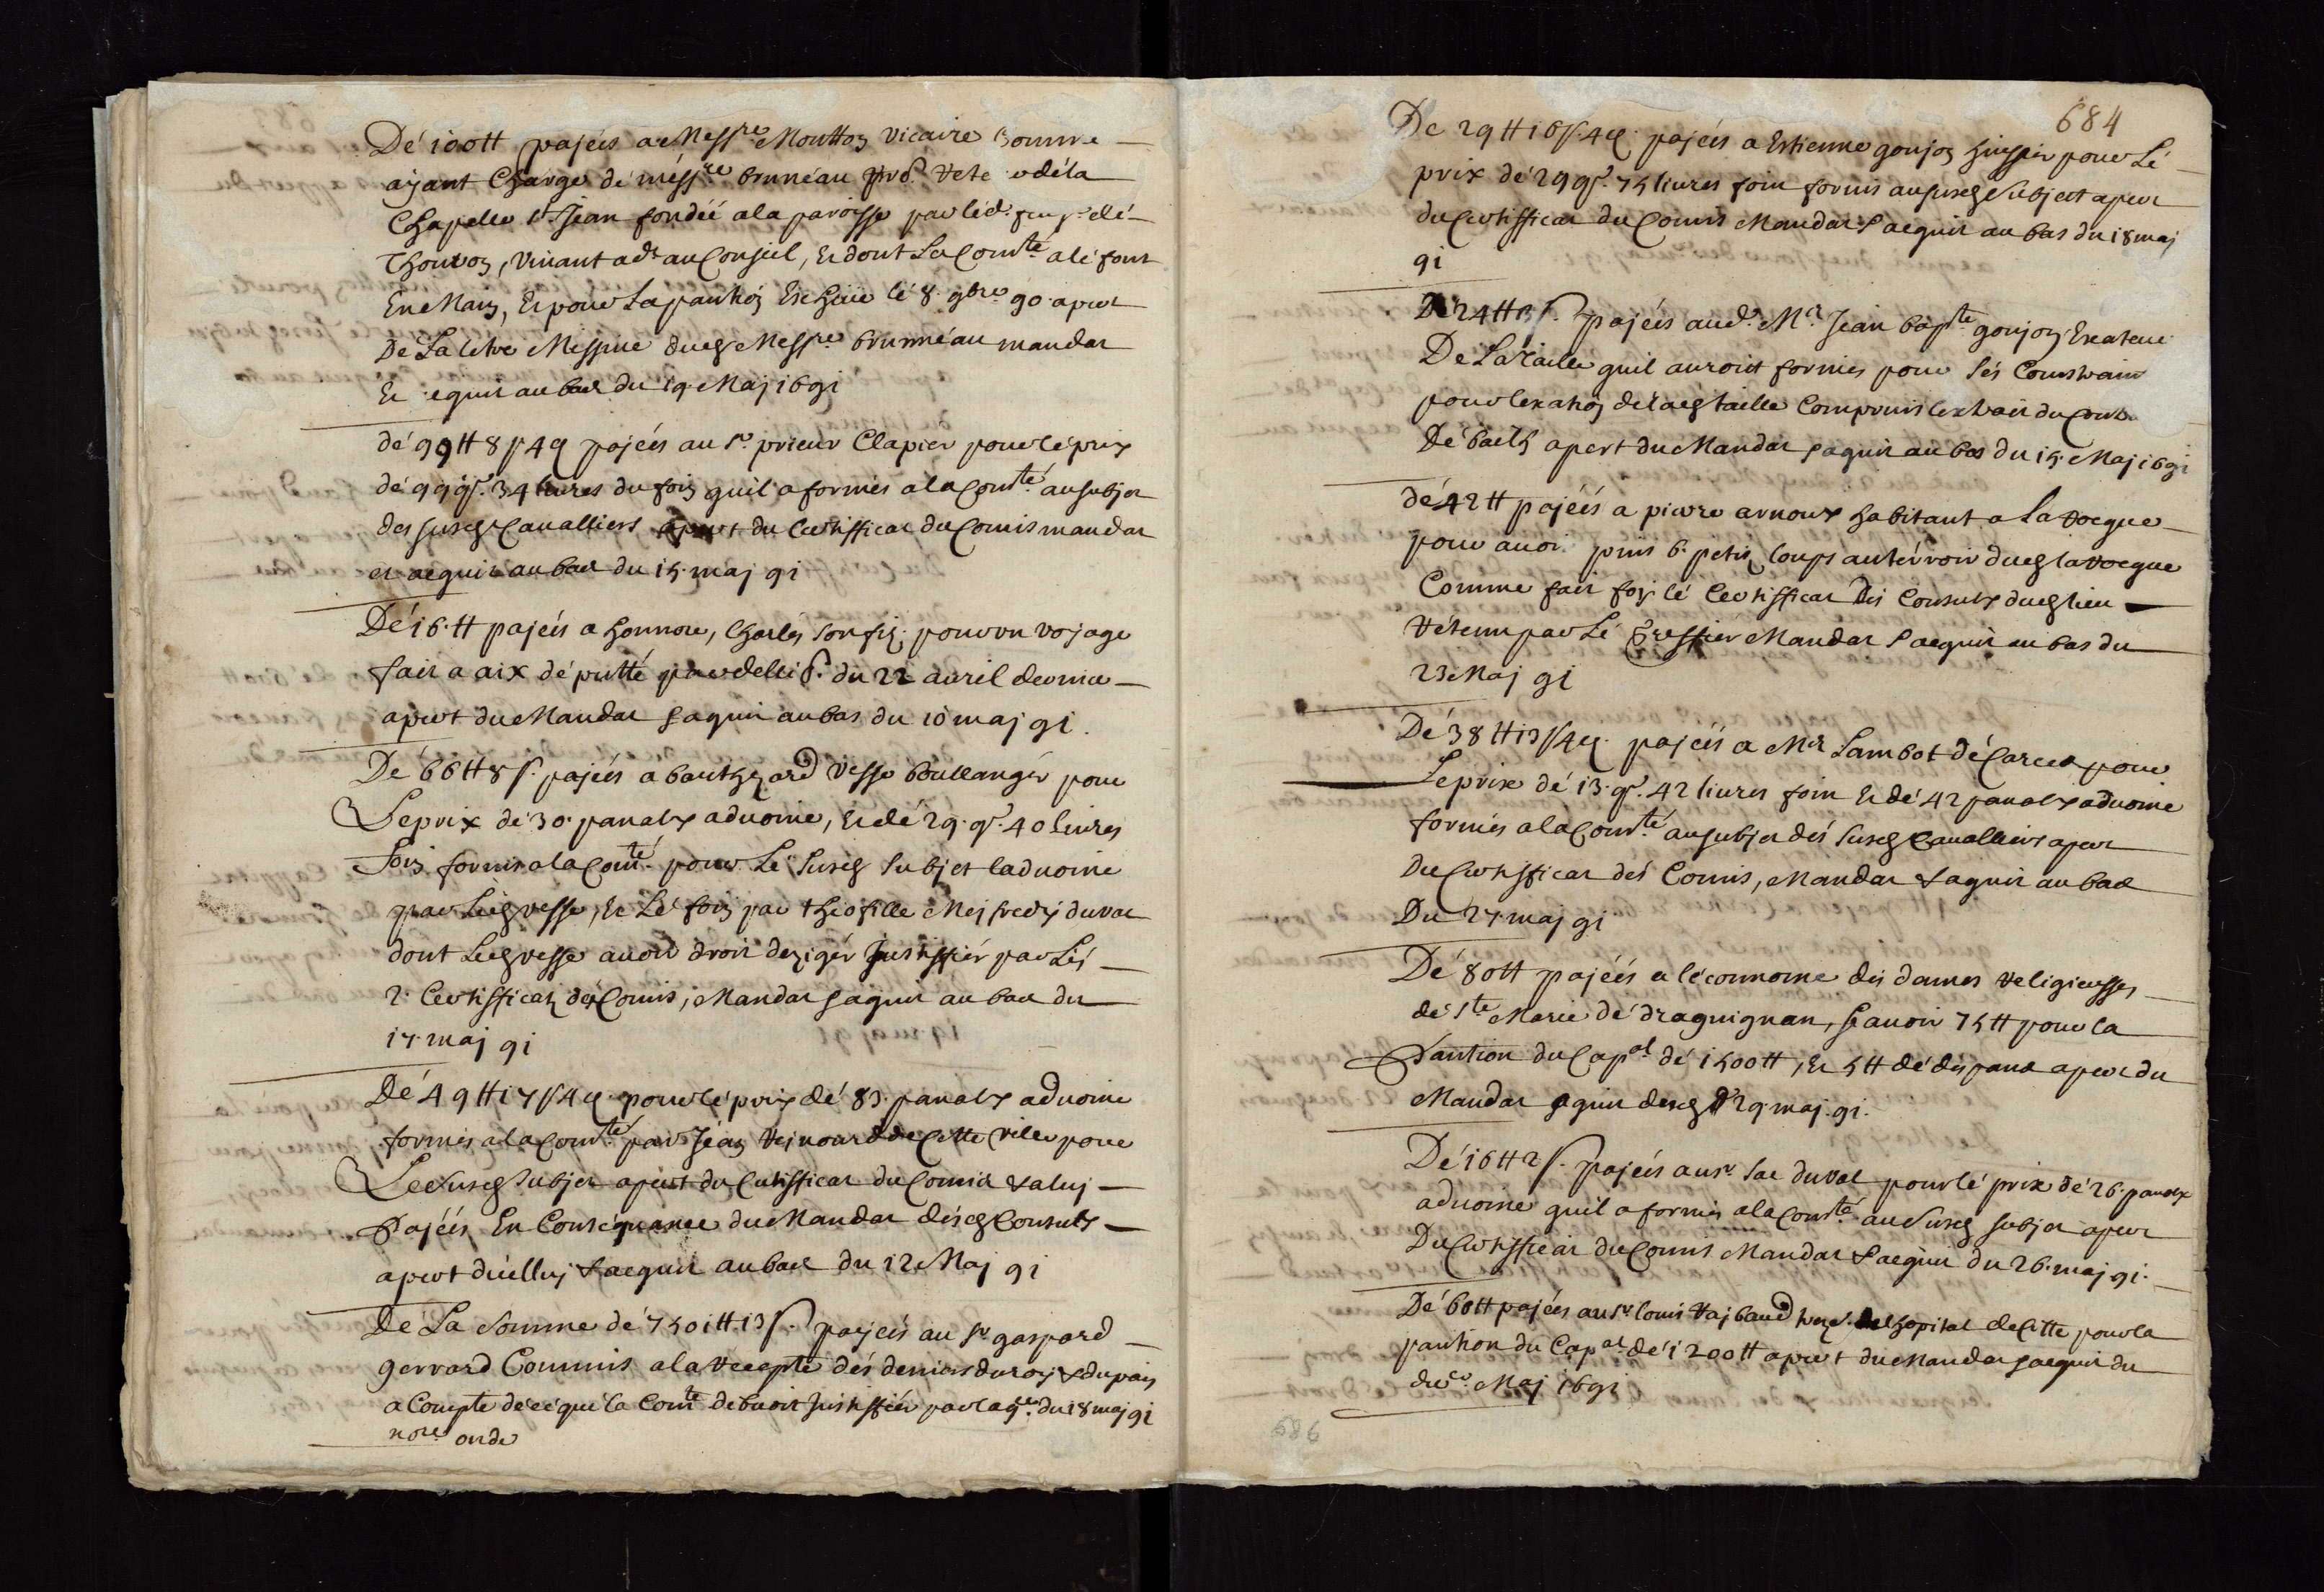 De 100 tt pajées a Messre Moutton vicaire
ajant Charge de messre bruneau
Chapelle st Jean fondéé a la paroisse par
Thouron, vivant adt au Conseil, Et dont La Comté a le font
En Main, Et pour La pantion Escheüe le 8. 9bre 90 apert
De La letre Missive dud Messre brunneau mandat
Et equit au bas du 19 Maj 1691
de 99 tt 8 s 4 d pajéés au sr prieur Clapier pour le prix
de 99 qx. 34 livres du foin quil a fornis a la Comté au subjet
des susd Cavalliers apert du Certifficat du Comis mandat
et acquit au bas du 15 maj 91
De 16 tt pajéés a honnore, Charles son fiz pour un vojage
fait a aix députté par delliB. du 22 avril dernier
apert du Mandat & aquit au bas du 10 maj 91.
De 66 tt 8 s. pajéés a vesse boullanger pour
Le prix de 30 panalx advoine, Et de 29 qx. 40 livres
foin fornis a la Comté pour Le susd subjet ladvoine
par Led vesse, Et Le foin par theofille Mejfredy duval
dont Led vesse avoit droit dexiger Justiffiér par Les
2. Certifficatz des Comis, Mandat & aquit au bas du
17 maj 91
De 49 tt 17 s 4 d. pour le prix de 83. panalx advoine
fornis a la Comté par Jean Rejnoard de Cette ville pour
Le susd subjet apert du Certifficat du Comis & a luj
Pajéés En Consequance du Mandat desd Consuls
apert d'icelluj & acquit au bas du 12 Maj 91
De La Somme de 7501 tt 13 s. pajéés au sr gaspard
gerrard Commis a la Recepte des deniers du roy & du pais
a Compte de ce que la Comté debvoit Justiffiér par laqce du 18 maj 91
nore onde
684
De 29 tt 16 s. 4 d. pajéés a Estienne goujon huissier pour Le
prix de 29 qx. 75 livres foin fornis au susd subject apert
du Certifficat du Comis Mandat & acquit au bas du 18 maj
91
De 24 tt 13 s. pajéés aud Mr Jean bapte goujon Exateur
De La Taille quil auroit fornies pour les Contrain
pour lexation de lad taille Compris lextrait du
De baeth apert du Mandat & aquit au bas du 15 Maj 1691
de 42 tt pajéés a pierre arnoux habitant a La roque
pour avoir pris 6. petis loups au térroir dud la roque
Comme fait foy le Certifficat des Consuls dud lieu
Retenu par Le greffier Mandat & acquit au bas du
23 Maj 91
De 38 tt 13 s 4 d. pajéés a Mr Lambot de Carces pour
Le prix de 13. qx. 42 livres foin Et de 42 panalx advoine
fornis a la Comté au subjet des susd Cavalliers apert
Du Certifficat des Comis, Mandat & aquit au bas
Du 27 maj 91
De 80 tt pajéés a léconnome des dames Religieusses
de ste Marie de draguignan, scavoir 75 tt pour la
Pantion du Capal de 1500 tt, Et 5 tt de despans apert du
Mandat aquit desd 29 maj 91.
De 16 tt 2 s. pajéés au sr duval pour le prix de 26. panalx
advoine quil a fornis a la Comté au susd subjet apert
Du Certifficat du Comis Mandat & acquit du 26 maj 91.
De 60 tt pajéés au sr louis Rajbaud lhopital de Cette pour la
pantion du Capal de 1200 tt apert du Mandat & acquit du
Maj 1691
686